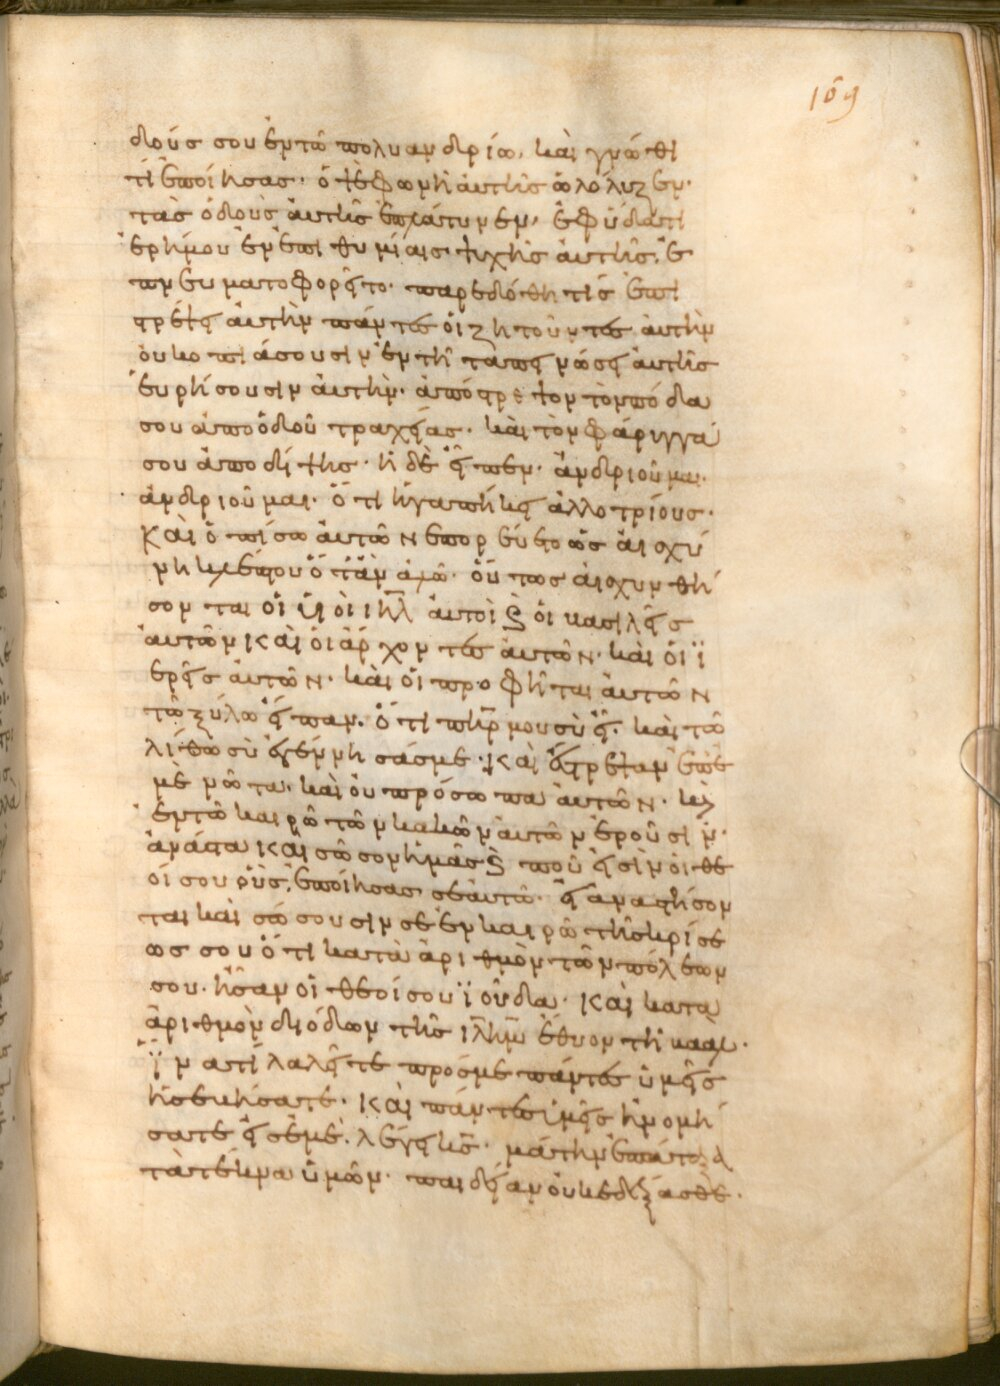 δούς σου ἐν τῶ πολυανδρίω, καὶ γνῶθι
τί ἐποίησας· ὀψὲ φωνὴ αὐτῆς ὠλόλυζεν·
τὰς ὁδοὺς αὐτῆς ἐπλάτυνεν, ἐφ ὕδατι
ἐρήμου ἐν ἐπιθυμίαις ψυχῆς αὐτῆς· ἐ
πνευματοφορεῖτο· παρεδόθη τίς ἐπι
στρέψει αὐτὴν πάντες οἱ ζητοῦντες αὐτὴν
οὐ κοπιάσουσιν ἐν τῆ ταπεινώσει αὐτῆς
εὑρήσουσιν αὐτήν· ἀπόστρεψον τὸν πόδα
σου ἀπὸ ὁδοῦ τραχείας· καὶ τὸν φάριγγά
σου ἀπὸ δίψης· ἡ δὲ εἶπεν· ἀνδριοῦμαι·
ἀνδριοῦμαι· ὅτι ἠγαπήκει ἀλλοτρίους·
καὶ ὀπίσω αὐτῶν ἐπορεύετο ὡς αἰσχύ
νη κλέπτου ὅταν ἁλῶ· οὕτως αἰσχυνθή
σονται οἱ υἱοὶ ιηλ αὐτοὶ καὶ οἱ βασιλεῖς
αὐτῶν καὶ οἱ ἄρχοντες αὐτῶν· καὶ οἱ ἱ
ερεῖς αὐτῶν· καὶ οἱ προφῆται αὐτῶν
τῶ ξύλω εἶπαν· ὅτι πηρ μου σὺ εἶ· καὶ τῶ
λίθω σὺ ἐγέννησάς με· καὶ ἔστρεψαν ἐπ ἐ
μὲ νῶτα· καὶ οὐ πρόσωπα αὐτῶν· καὶ
ἐν τῶ καιρῶ τῶν κακῶν αὐτῶν ἐροῦσιν·
ἀνάστα καὶ σῶσον ἡμᾶς καὶ ποῦ εἰσὶν οἱ θε
οί σου οὓς ἐποίησας σεαυτῶ· εἰ ἀναστήσον
ται καὶ σώσουσιν σε ἐν καιρῶ τῆς κρίσε
ως σου ὅτι κατὰ ἀριθμὸν τῶν πόλεων
σου· ἦσαν οἱ θεοί σου ϊούδα· καὶ κατα
ἀριθμὸν διόδων τῆς ιλημ ἔθυον τῆ βααλ·
ἵνα τί λαλεῖτε πρός με πάντες ὑμεῖς
ἠσεβήσατε· καὶ πάντες ὑμεῖς ἠνομή
σατε εἰς ἐμέ· λέγει κς· μάτην ἐπάταξα
τὰ τέκνα ὑμῶν· παιδείαν οὐκ ἐδέξασθε·